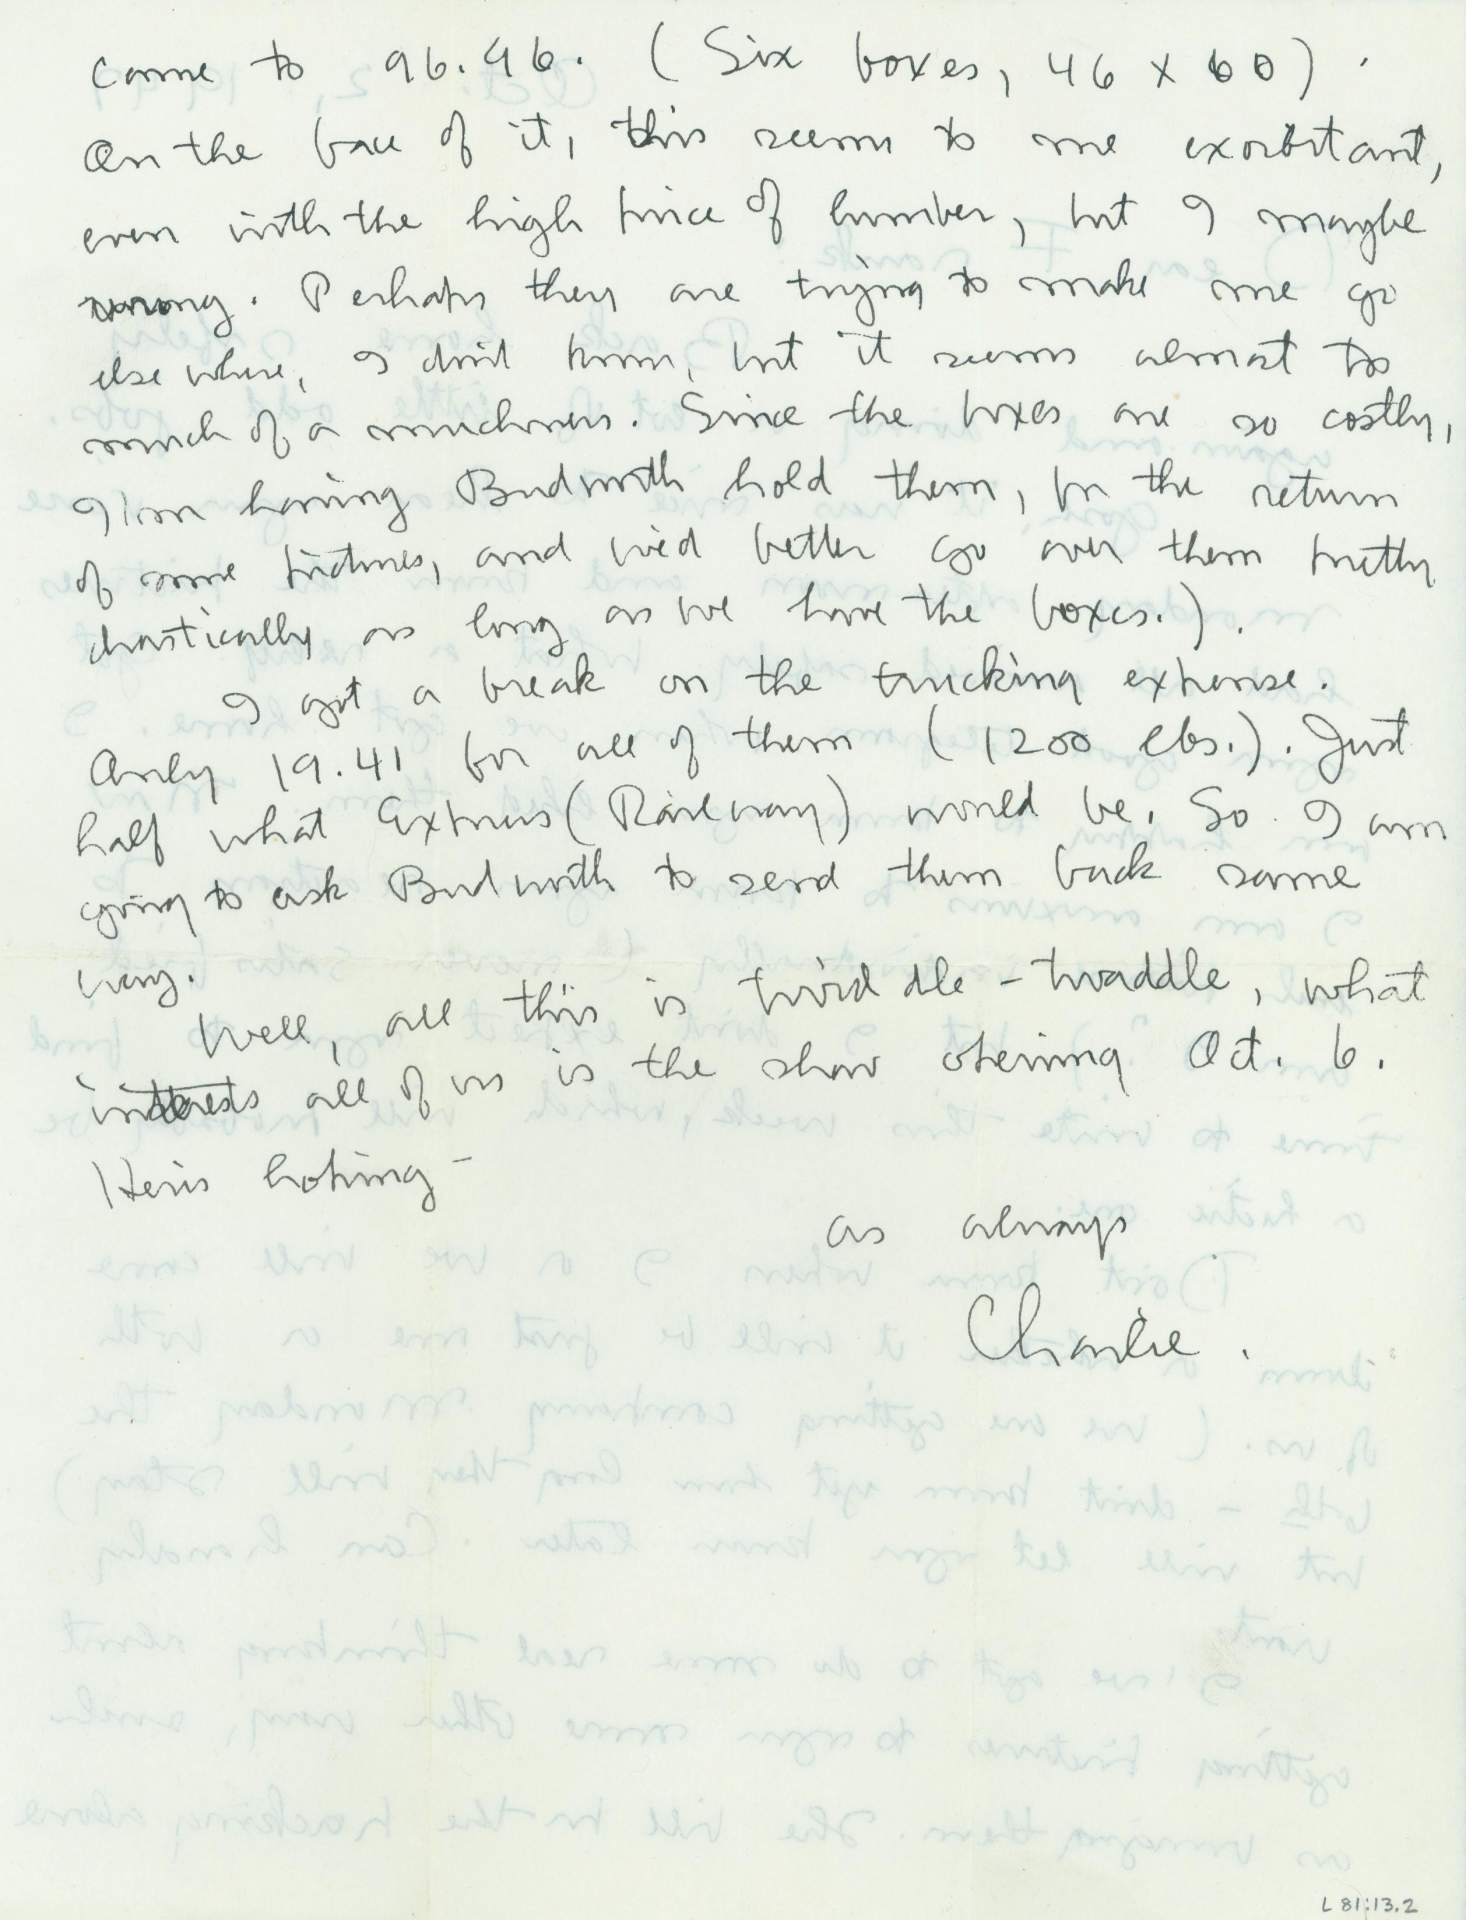 come to 96.46. (Six boxes, 46 x 60).
On the face of it, this seems to me exorbitant,
even with the high price of lumber, but I maybe
wrong. Perhaps they are trying to make me go
else where, I don't know, but it seems almost too
much of a muchness. Since the boxes are so costly,
I'm having Budworth hold them, for the return
of some pictures, and we'd better go over them pretty
drastically as long as we have the boxes.).
I got a break on the trucking expense.
Only 19.41 for all of them (1200 lbs.). Just
half what Express (Railway) would be. So I am
going to ask Budworth to send them back same
way.
Well, all this is twiddle-twaddle, what
interests all of us is the show opening Oct. 6.
Here's hoping -
as always
Charlie.
L 81:13.2